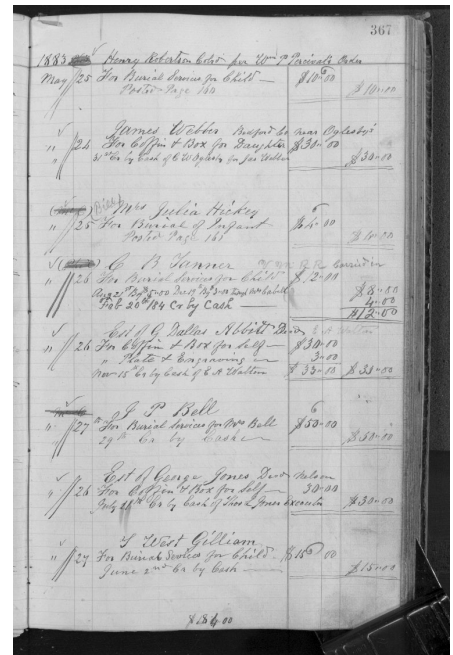 367
1883 Henry Robertson Cold per Wm P Percivals Order
May 25 For Burial Services for Child — $10.00
Posted Page 160 $10.00
James Webber Bedford Co near Oglesby's
" 24 For Coffin & Box for Daughter $30.00
31st Cr by Cash of C W Oglesby for Jas Webber $30.00
Mrs Julia Hickey
" 25 For Burial of Infant
Posted Page 161
C B Tanner
" 25 For Burial Services for Child $12.00
$8.00
Feb 20th 184 Cr by Cash 4.00
$12.00
Est of G Dallas Abbitt Decd E A Walton
" 26 For Coffin & Box for Self $30.00
" Plate & Engraving 3.00
Nov 15th Cr by Cash of E A Walton $33.00 $33.00
J P Bell
" 27th For Burial Services for Mrs Bell $50.00
29th Cr by Cash $50.00
Est of George Jones Decd Nelson
" 26 For Coffin & Box for Self 30.00
July 28th Cr by Cash of Thos Jones Executor $30.00
T West Gilliam
" 27 For Burial Services for Child $15.00
June 2nd Cr by Cash $15.00
$184.00